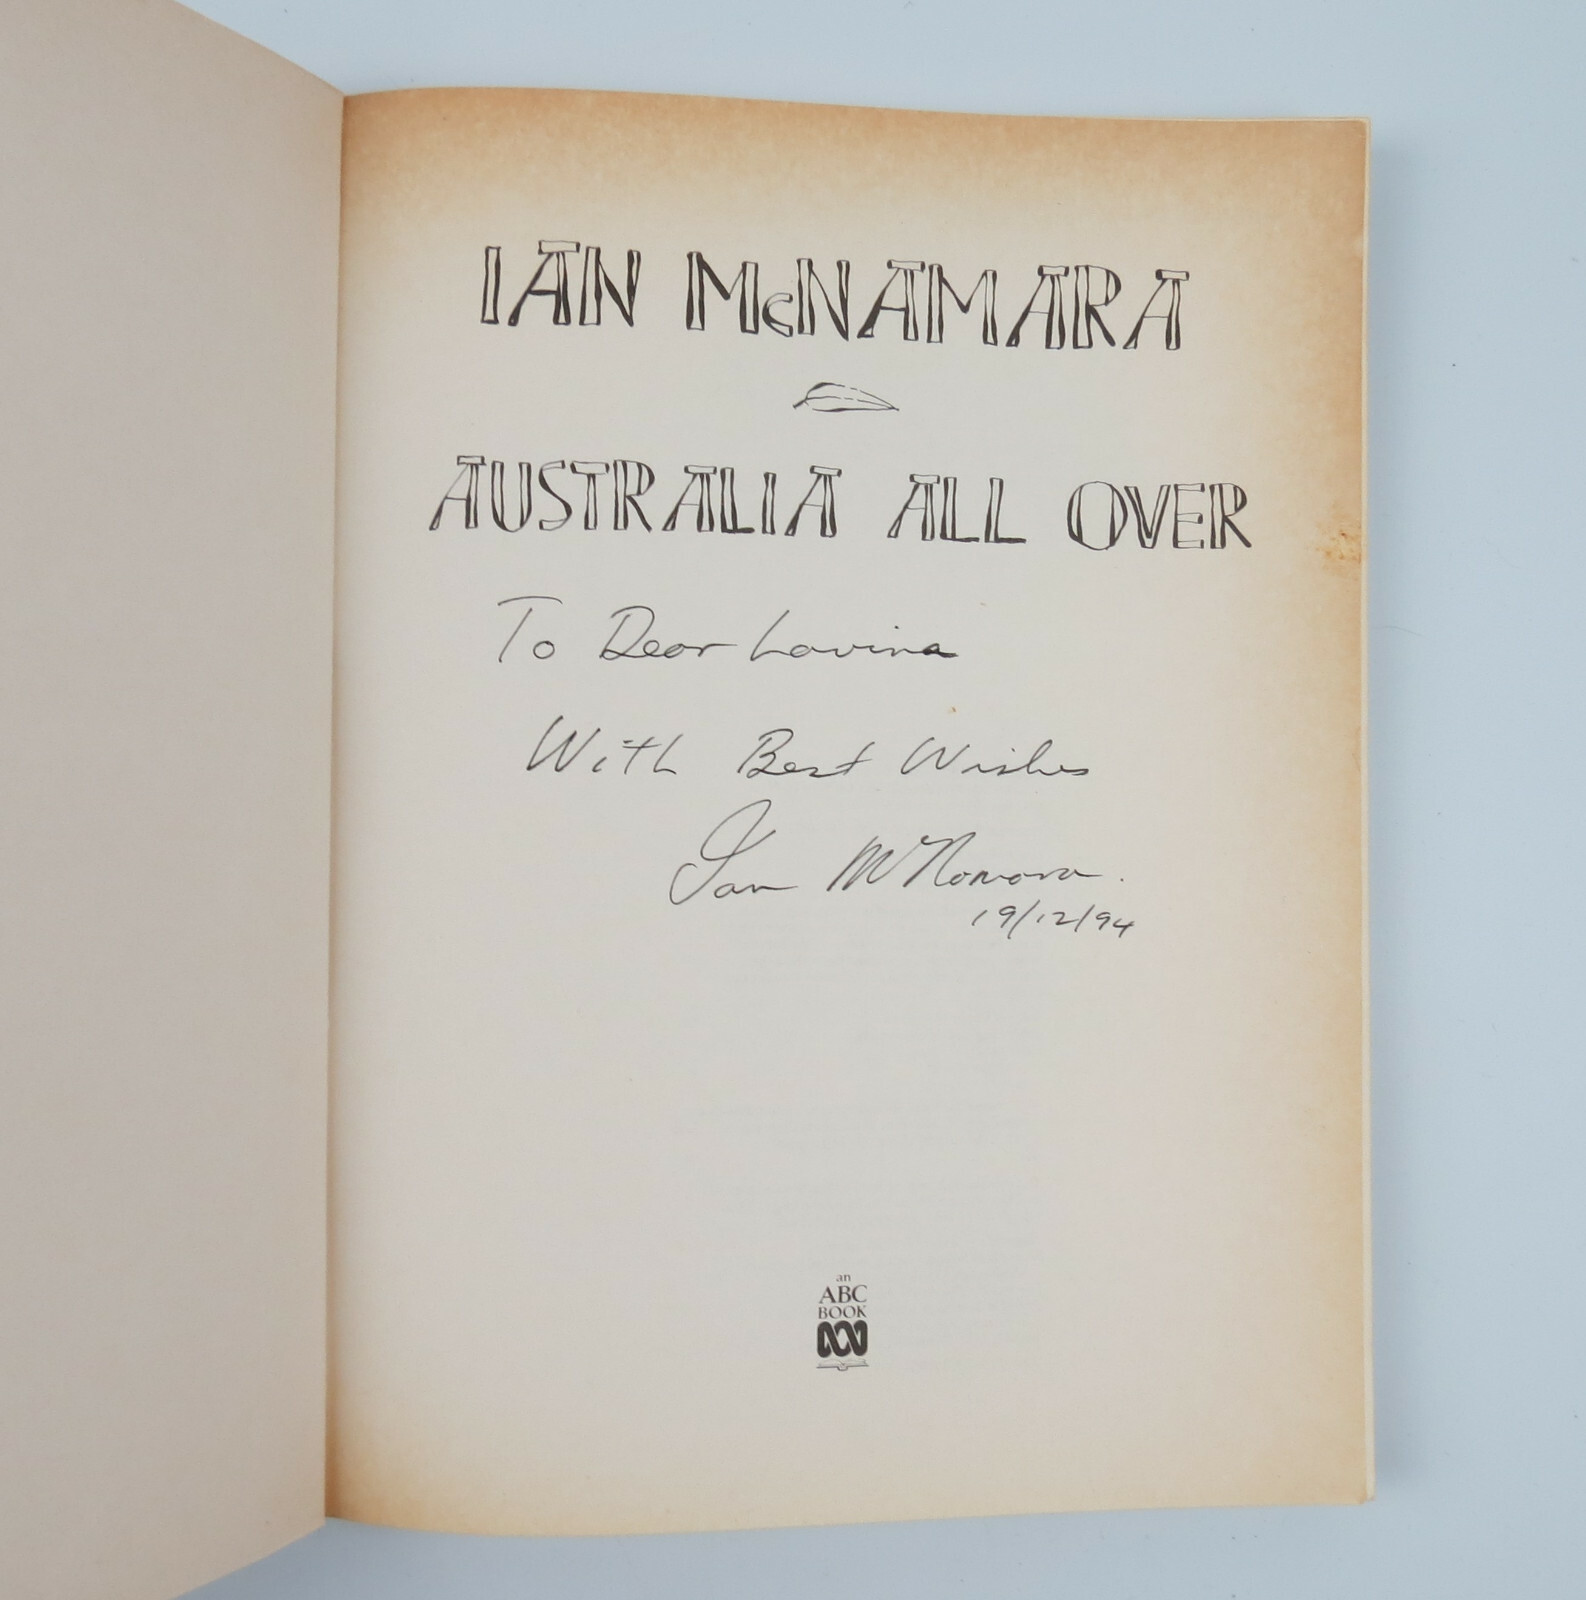 IAN McNAMARA
AUSTRALIA ALL OVER
To Dear Lavina
With Best Wishes
Ian McNamara.
19/12/94
an
ABC
BOOK